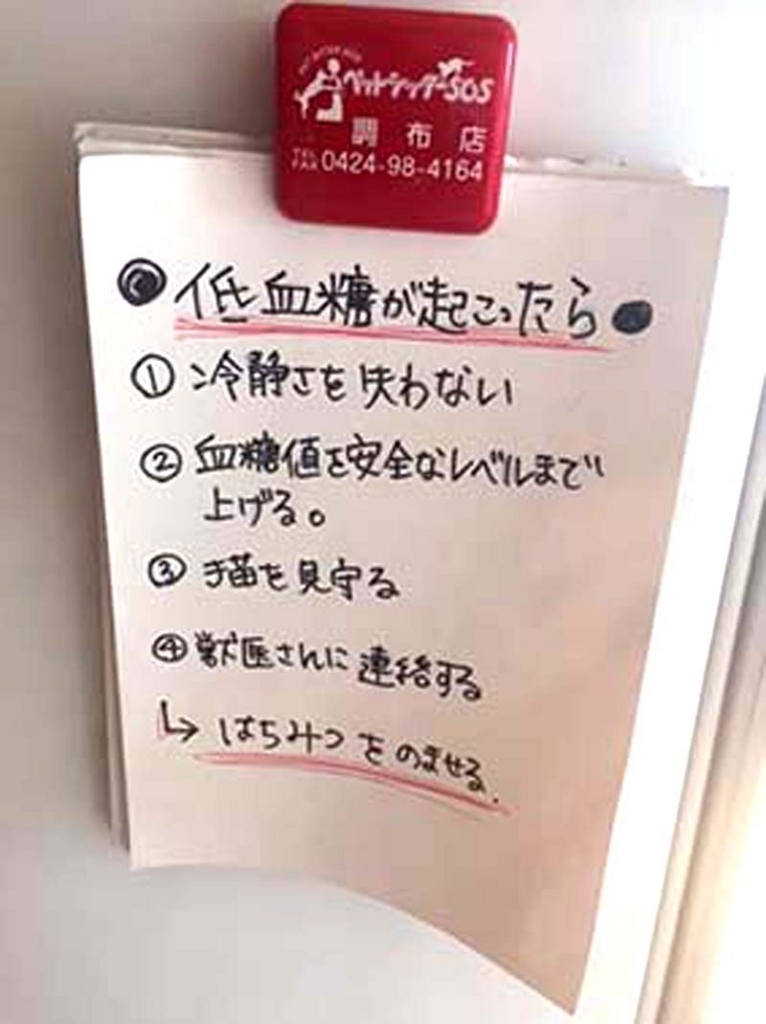 ペットシッターSOS
調布店
TEL FAX 0424-98-4164
● 低血糖が起こったら ●
① 冷静さを失わない
② 血糖値を安全なレベルまで
上げる。
③ 猫を見守る
④ 獣医さんに連絡する
↳ はちみつをのませる.